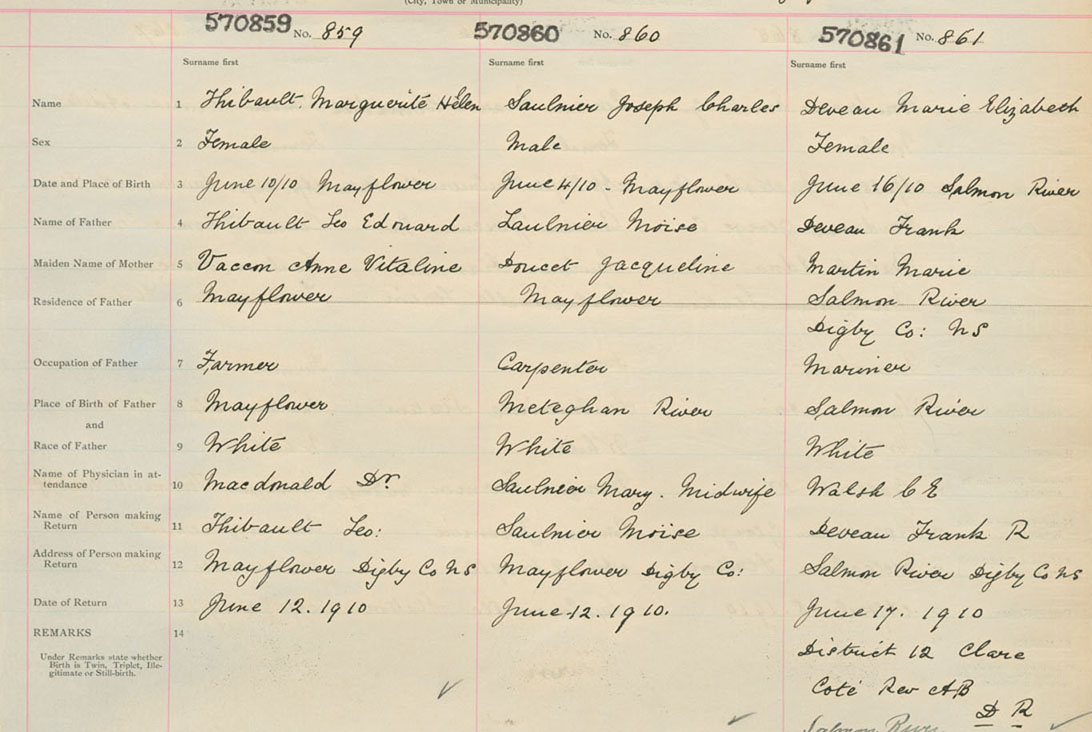 (City, Town or Municipality)
570859 No. 859 570860 No. 860 570861 No. 861
Surname first Surname first Surname first
Name 1 Thibault, Marguerite Hélen Saulnier Joseph Charles Deveau Marie Elizabeth
Sex 2 Female Male Female
Date and Place of Birth 3 June 10/10 Mayflower June 4/10 - Mayflower June 16/10 Salmon River
Name of Father 4 Thibault Leo Edouard Saulnier Moise Deveau Frank
Maiden Name of Mother 5 Vaccon Anne Vitaline Doucet Jacqueline Martin Marie
Residence of Father 6 Mayflower Mayflower Salmon River
Digby Co: NS
Occupation of Father 7 Farmer Carpenter Mariner
Place of Birth of Father 8 Mayflower Meteghan River Salmon River
and
Race of Father 9 White White White
Name of Physician in at-
tendance 10 Macdonald Dr. Saulnier Mary. Midwife Walsh C E
Name of Person making
Return 11 Thibault Leo: Saulnier Moise Deveau Frank R
Address of Person making
Return 12 Mayflower Digby Co NS Mayflower Digby Co: Salmon River Digby Co NS
Date of Return 13 June 12. 1910 June 12. 1910. June 17. 1910
REMARKS 14
Under Remarks state whether
Birth is Twin, Triplet, Ille-
gitimate or Still-birth.
District 12 Clare
Coté Rev AB
D R
Salmon River